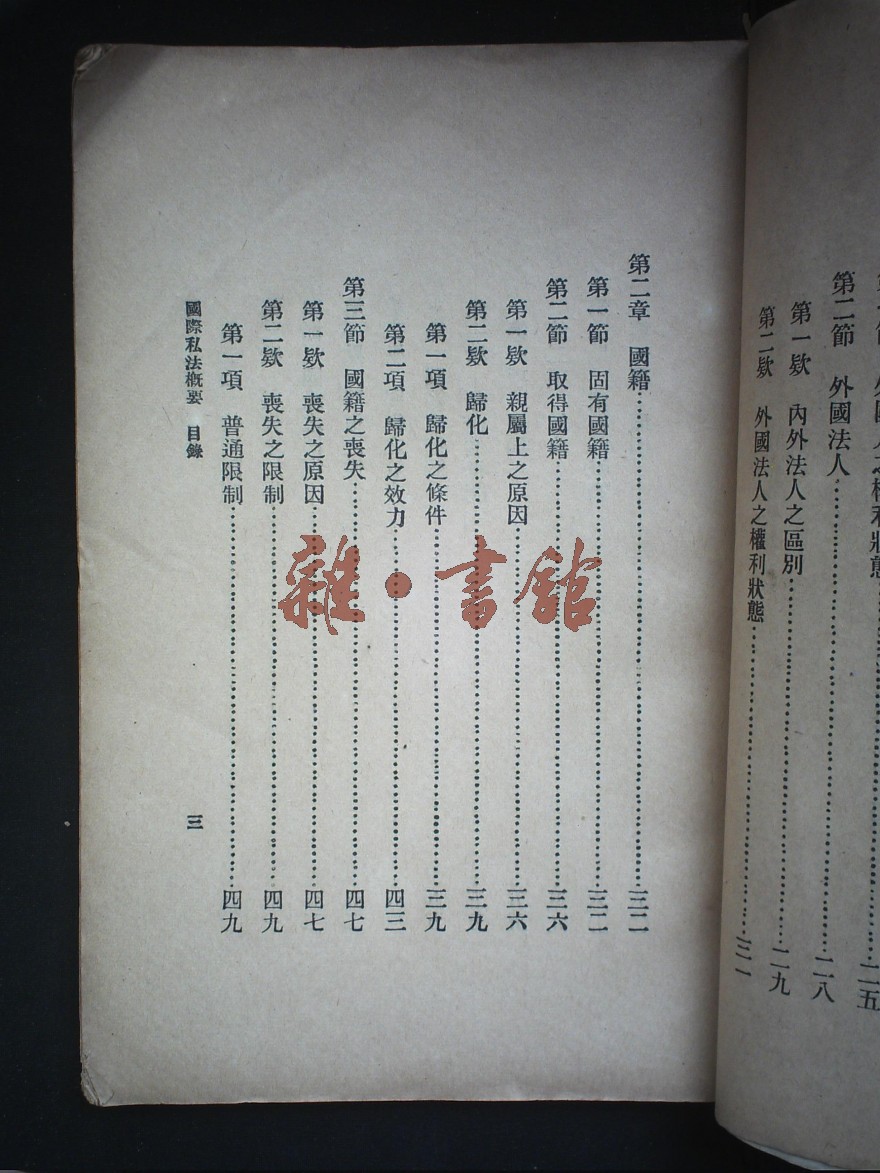 第二節　外國法人……二八
第一欵　內外法人之區別……二九
第二欵　外國法人之權利狀態……三一
第二章　國籍……三二
第一節　固有國籍……三二
第二節　取得國籍……三六
第一欵　親屬上之原因……三六
第二欵　歸化……三九
第一項　歸化之條件……三九
第二項　歸化之效力……四三
第三節　國籍之喪失……四七
第一欵　喪失之原因……四七
第二欵　喪失之限制……四九
第一項　普通限制……四九
國際私法概要　目錄
三
雜·書館